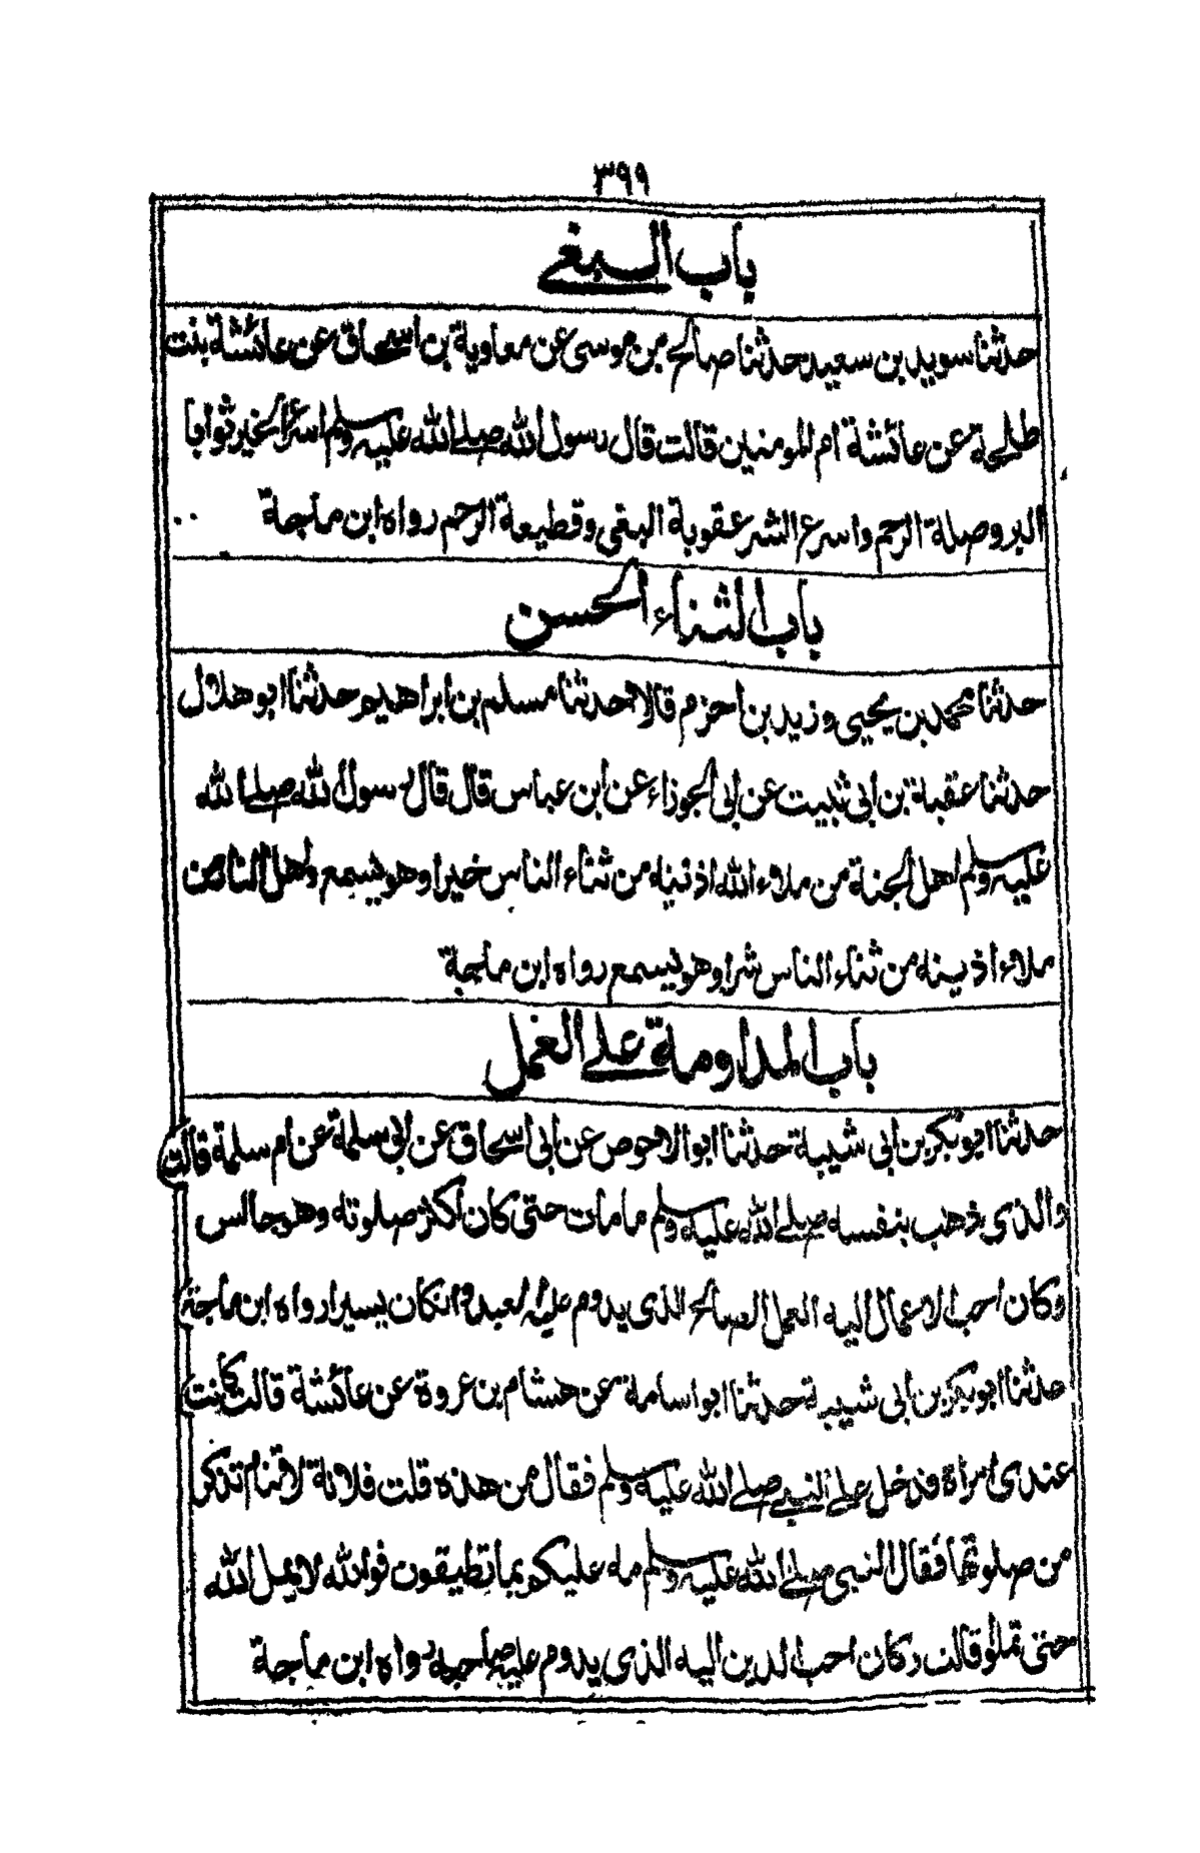 ٣٩٩
باب البغى
حدثنا سويد بن سعيد حدثنا صالح بن موسى عن معاوية بن اسحاق عن عائشة بنت
طلحة عن عائشة ام المومنين قالت قال رسول الله صلى الله عليه وسلم اسرع الخير ثوابا
البر وصلة الرحم واسرع الشر عقوبة البغى وقطيعة الرحم رواه ابن ماجة
باب الثناء الحسن
حدثنا محمد بن يحيى وزيد بن احزم قالا حدثنا مسلم بن ابراهيم حدثنا ابو هلال
حدثنا عقبة بن ابى ثبيت عن ابى الجوزاء عن ابن عباس قال قال رسول الله صلى الله
عليه وسلم اهل الجنة من ملاء الله اذنيه من ثناء الناس خيرا وهو يسمع واهل النار من
ملاء اذينه من ثناء الناس شرا وهو يسمع رواه ابن ماجة
باب المداومة على العمل
حدثنا ابو بكر بن ابى شيبة حدثنا ابو الاحوص عن ابى اسحاق عن ابى سلمة عن ام سلمة قالت
والذى ذهب بنفسه صلى الله عليه وسلم ما مات حتى كان اكثر صلوته وهو جالس
وكان احب الاعمال اليه العمل الصالح الذى يدوم عليه العبد وانكان يسيرا رواه ابن ماجة
حدثنا ابو بكر بن ابى شيبة حدثنا ابو اسامة عن هشام بن عروة عن عائشة قالت كانت
عندى امراة فدخل على النبى صلى الله عليه وسلم فقال من هذه قلت فلانة لا تنام تذكر
من صلوتها فقال النبى صلى الله عليه وسلم مه عليكم بما تطيقون فوالله لا يمل الله
حتى تملوا قالت وكان احب الدين اليه الذى يدوم عليه صاحبه رواه ابن ماجة